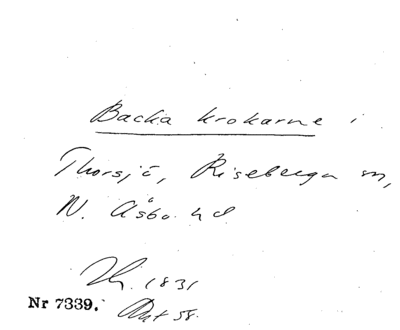 Backa krokarne i
Thorsjö, Riseberga sn,
N. Åsbo hd
1831
Nr 7339. Akt 58.